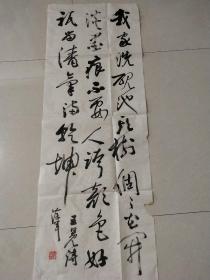 我家洗砚池头树个个花开
淡墨痕不要人夸颜色好
只留清气满乾坤
王冕诗